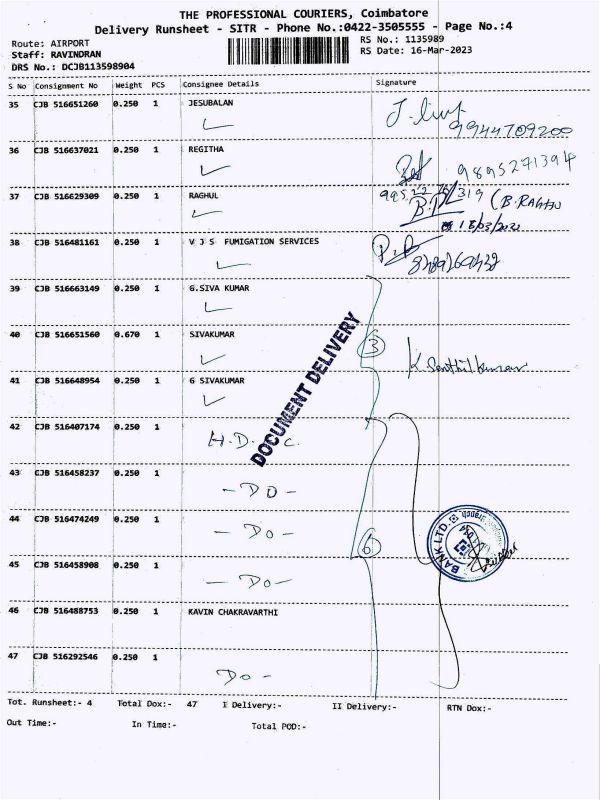 THE PROFESSIONAL COURIERS, Coimbatore
Delivery Runsheet - SITR - Phone No.:0422-3505555 - Page No.:4
Route: AIRPORT
RS No.: 1135989
Staff: RAVINDRAN
RS Date: 16-Mar-2023
DRS No.: DCJB113598904
S No Consignment No Weight PCS Consignee Details Signature
35 CJB 516651260 0.250 1 JESUBALAN
9944709200
36 CJB 516637021 0.250 1 REGITHA
9895271394
37 CJB 516629309 0.250 1 RAGHUL
38 CJB 516481161 0.250 1 V J S FUMIGATION SERVICES
39 CJB 516663149 0.250 1 G.SIVA KUMAR
40 CJB 516651560 0.670 1 SIVAKUMAR
3
K Senthilkumar
41 CJB 516648954 0.250 1 G SIVAKUMAR
DOCUMENT DELIVERY
42 CJB 516407174 0.250 1 H.D. C.
43 CJB 516458237 0.250 1 - DO -
44 CJB 516474249 0.250 1 - DO -
6
BANK LTD.
45 CJB 516458908 0.250 1 - DO -
46 CJB 516488753 0.250 1 KAVIN CHAKRAVARTHI
47 CJB 516292546 0.250 1 DO -
Tot. Runsheet:- 4 Total Dox:- 47 I Delivery:- II Delivery:- RTN Dox:-
Out Time:- In Time:- Total POD:-